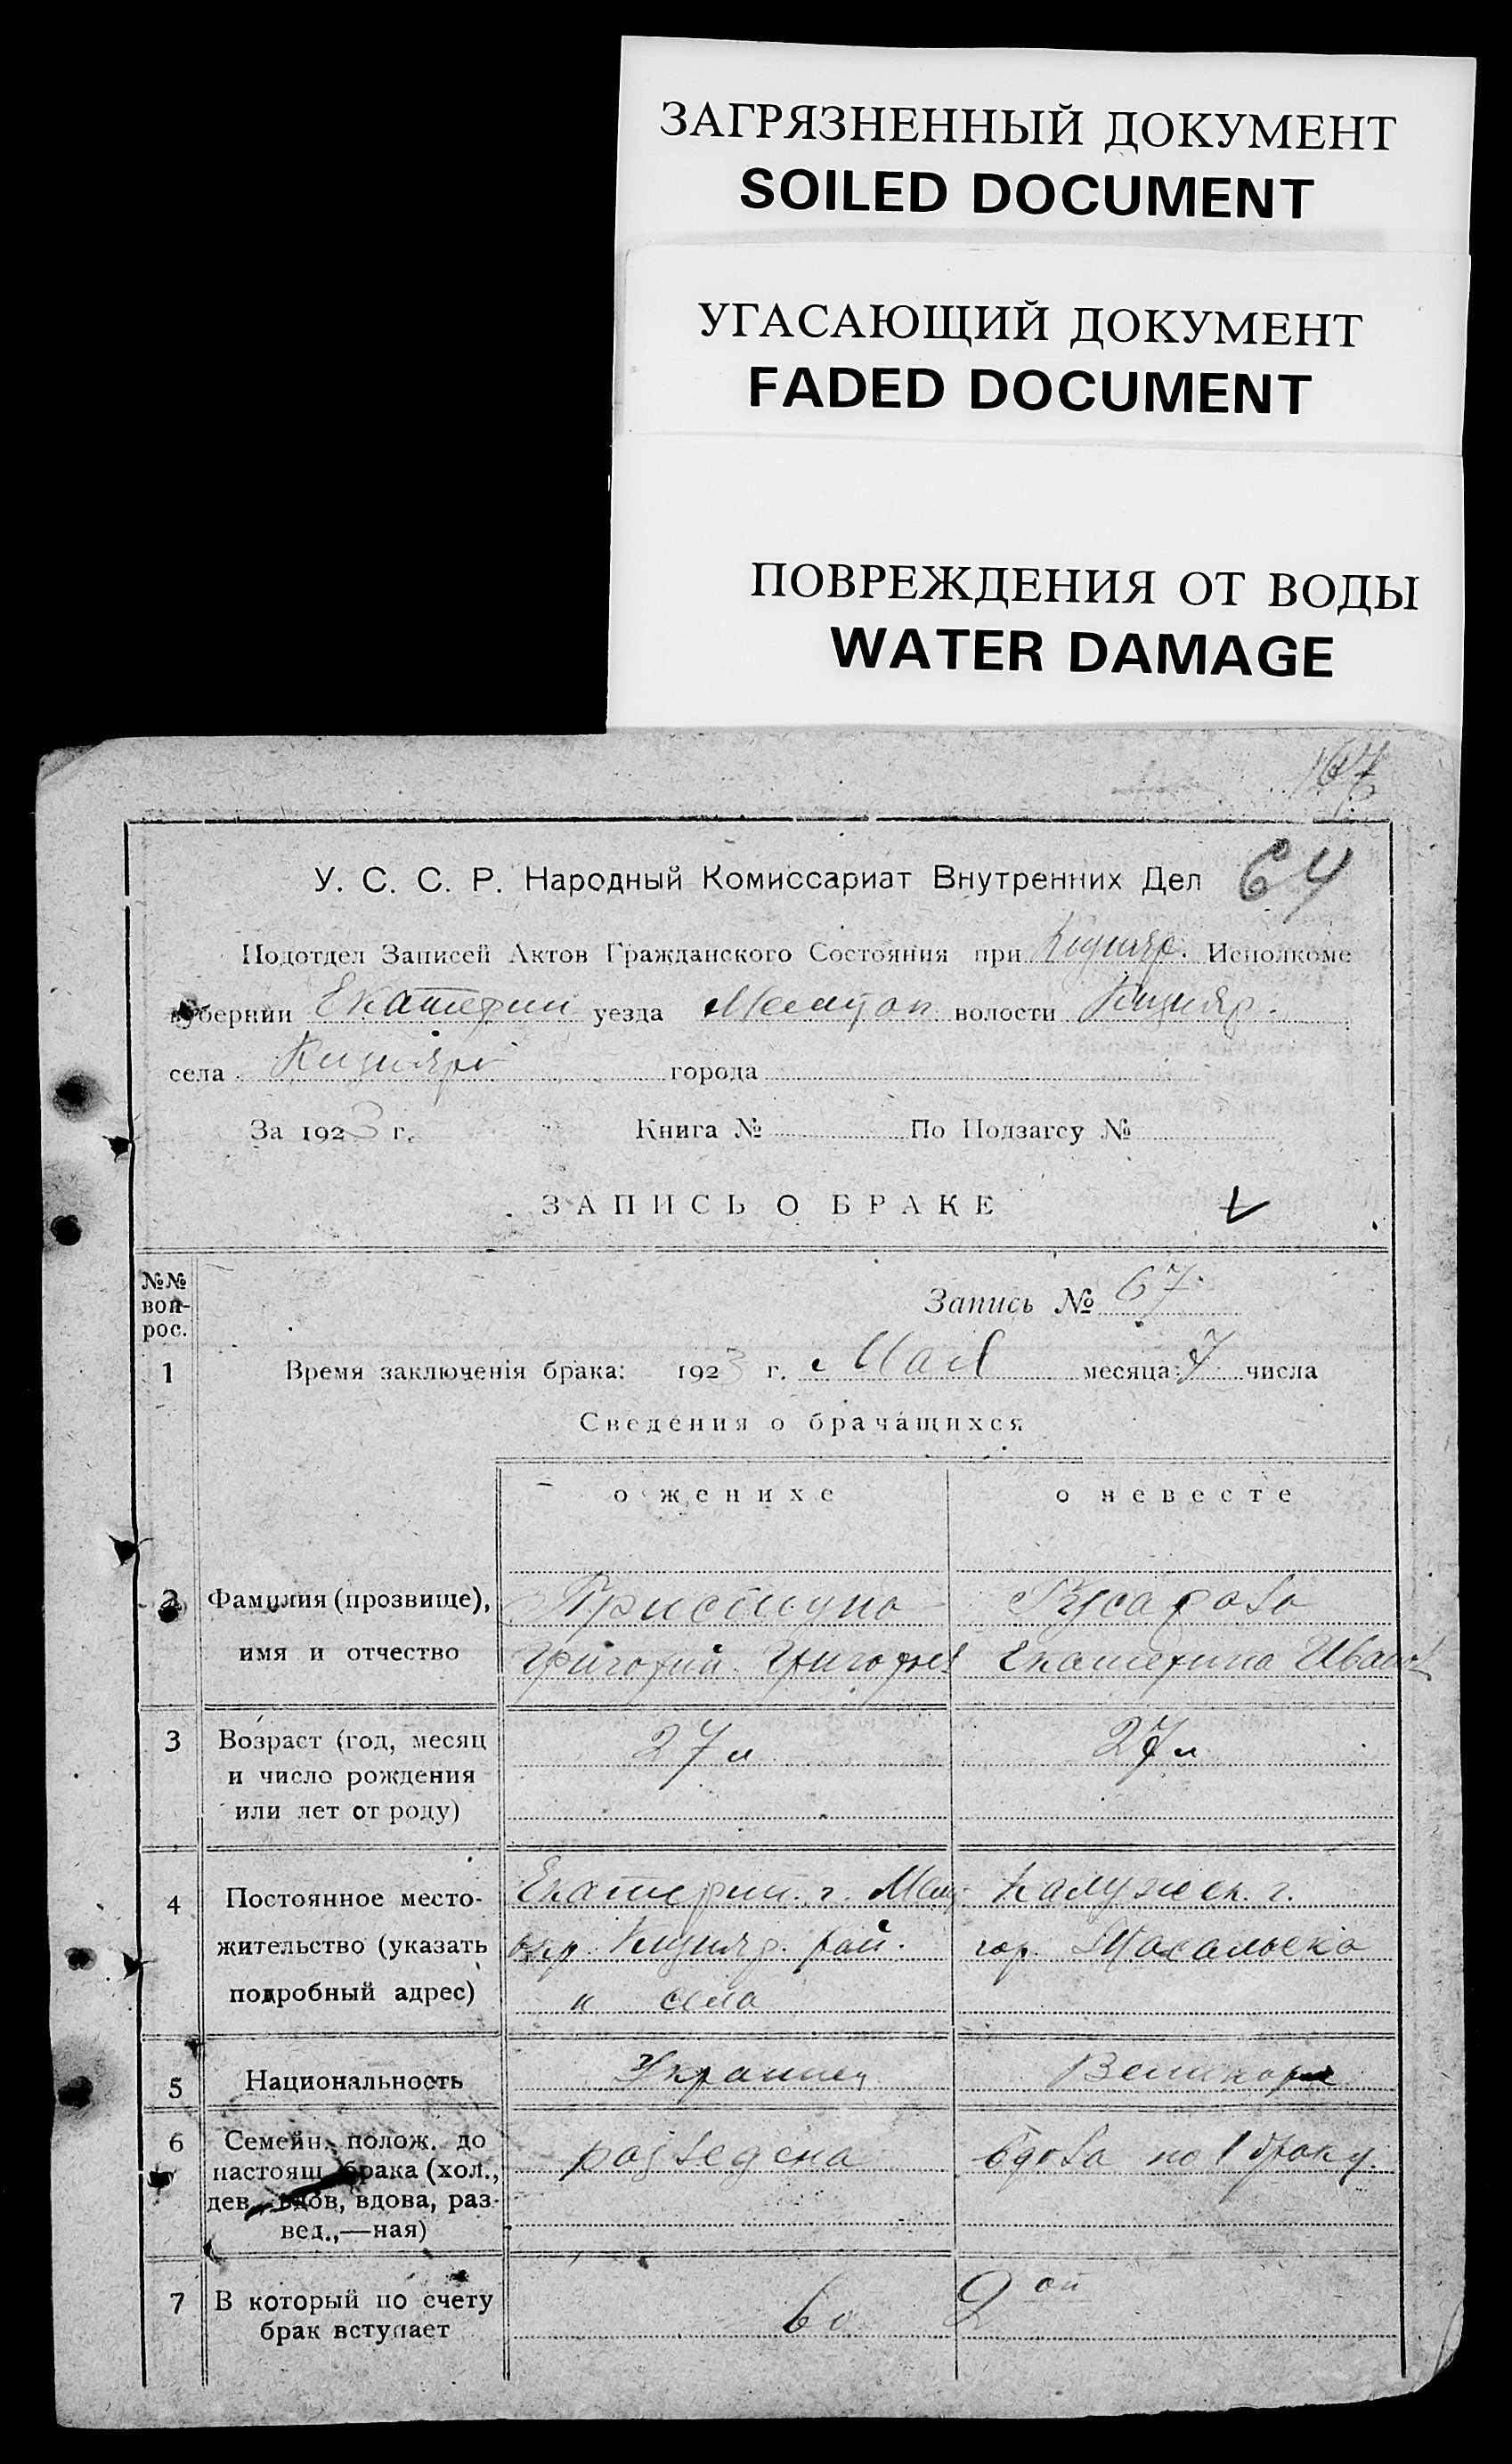 ЗАГРЯЗНЕННЫЙ ДОКУМЕНТ
SOILED DOCUMENT
УГАСАЮЩИЙ ДОКУМЕНТ
FADED DOCUMENT
ПОВРЕЖДЕНИЯ ОТ ВОДЫ
WATER DAMAGE
64
У. С. С. Р. Народный Комиссариат Внутренних Дел
Подотдел Записей Актов Гражданского Состояния при Исполкоме
губернии Екатерин уезда волости
села города
За 1923 г. Книга № По Подзагсу №
ЗАПИСЬ О БРАКЕ
№№ вопрос.
Запись № 67
1 Время заключенія брака: 1923 г. Мая месяца: 7 числа
Сведения о брачащихся
о женихе о невесте
2 Фамилия (прозвище), Приступа
имя и отчество Григорий Григорьев Екатерина Иванов
3 Возраст (год, месяц 27 л 27 л
и число рождения
или лет от роду)
4 Постоянное место- Екатерин. г. Мел. Калужск. г.
жительство (указать окр рай. гор. Мосальска
подробный адрес) и села
5 Национальность Украинец Великор
6 Семейн. полож. до разведена вдова по 1 браку.
настоящ. брака (хол.,
дев., вдов, вдова, раз-
вед.,—ная)
7 В который по счету во 2ой
брак вступает